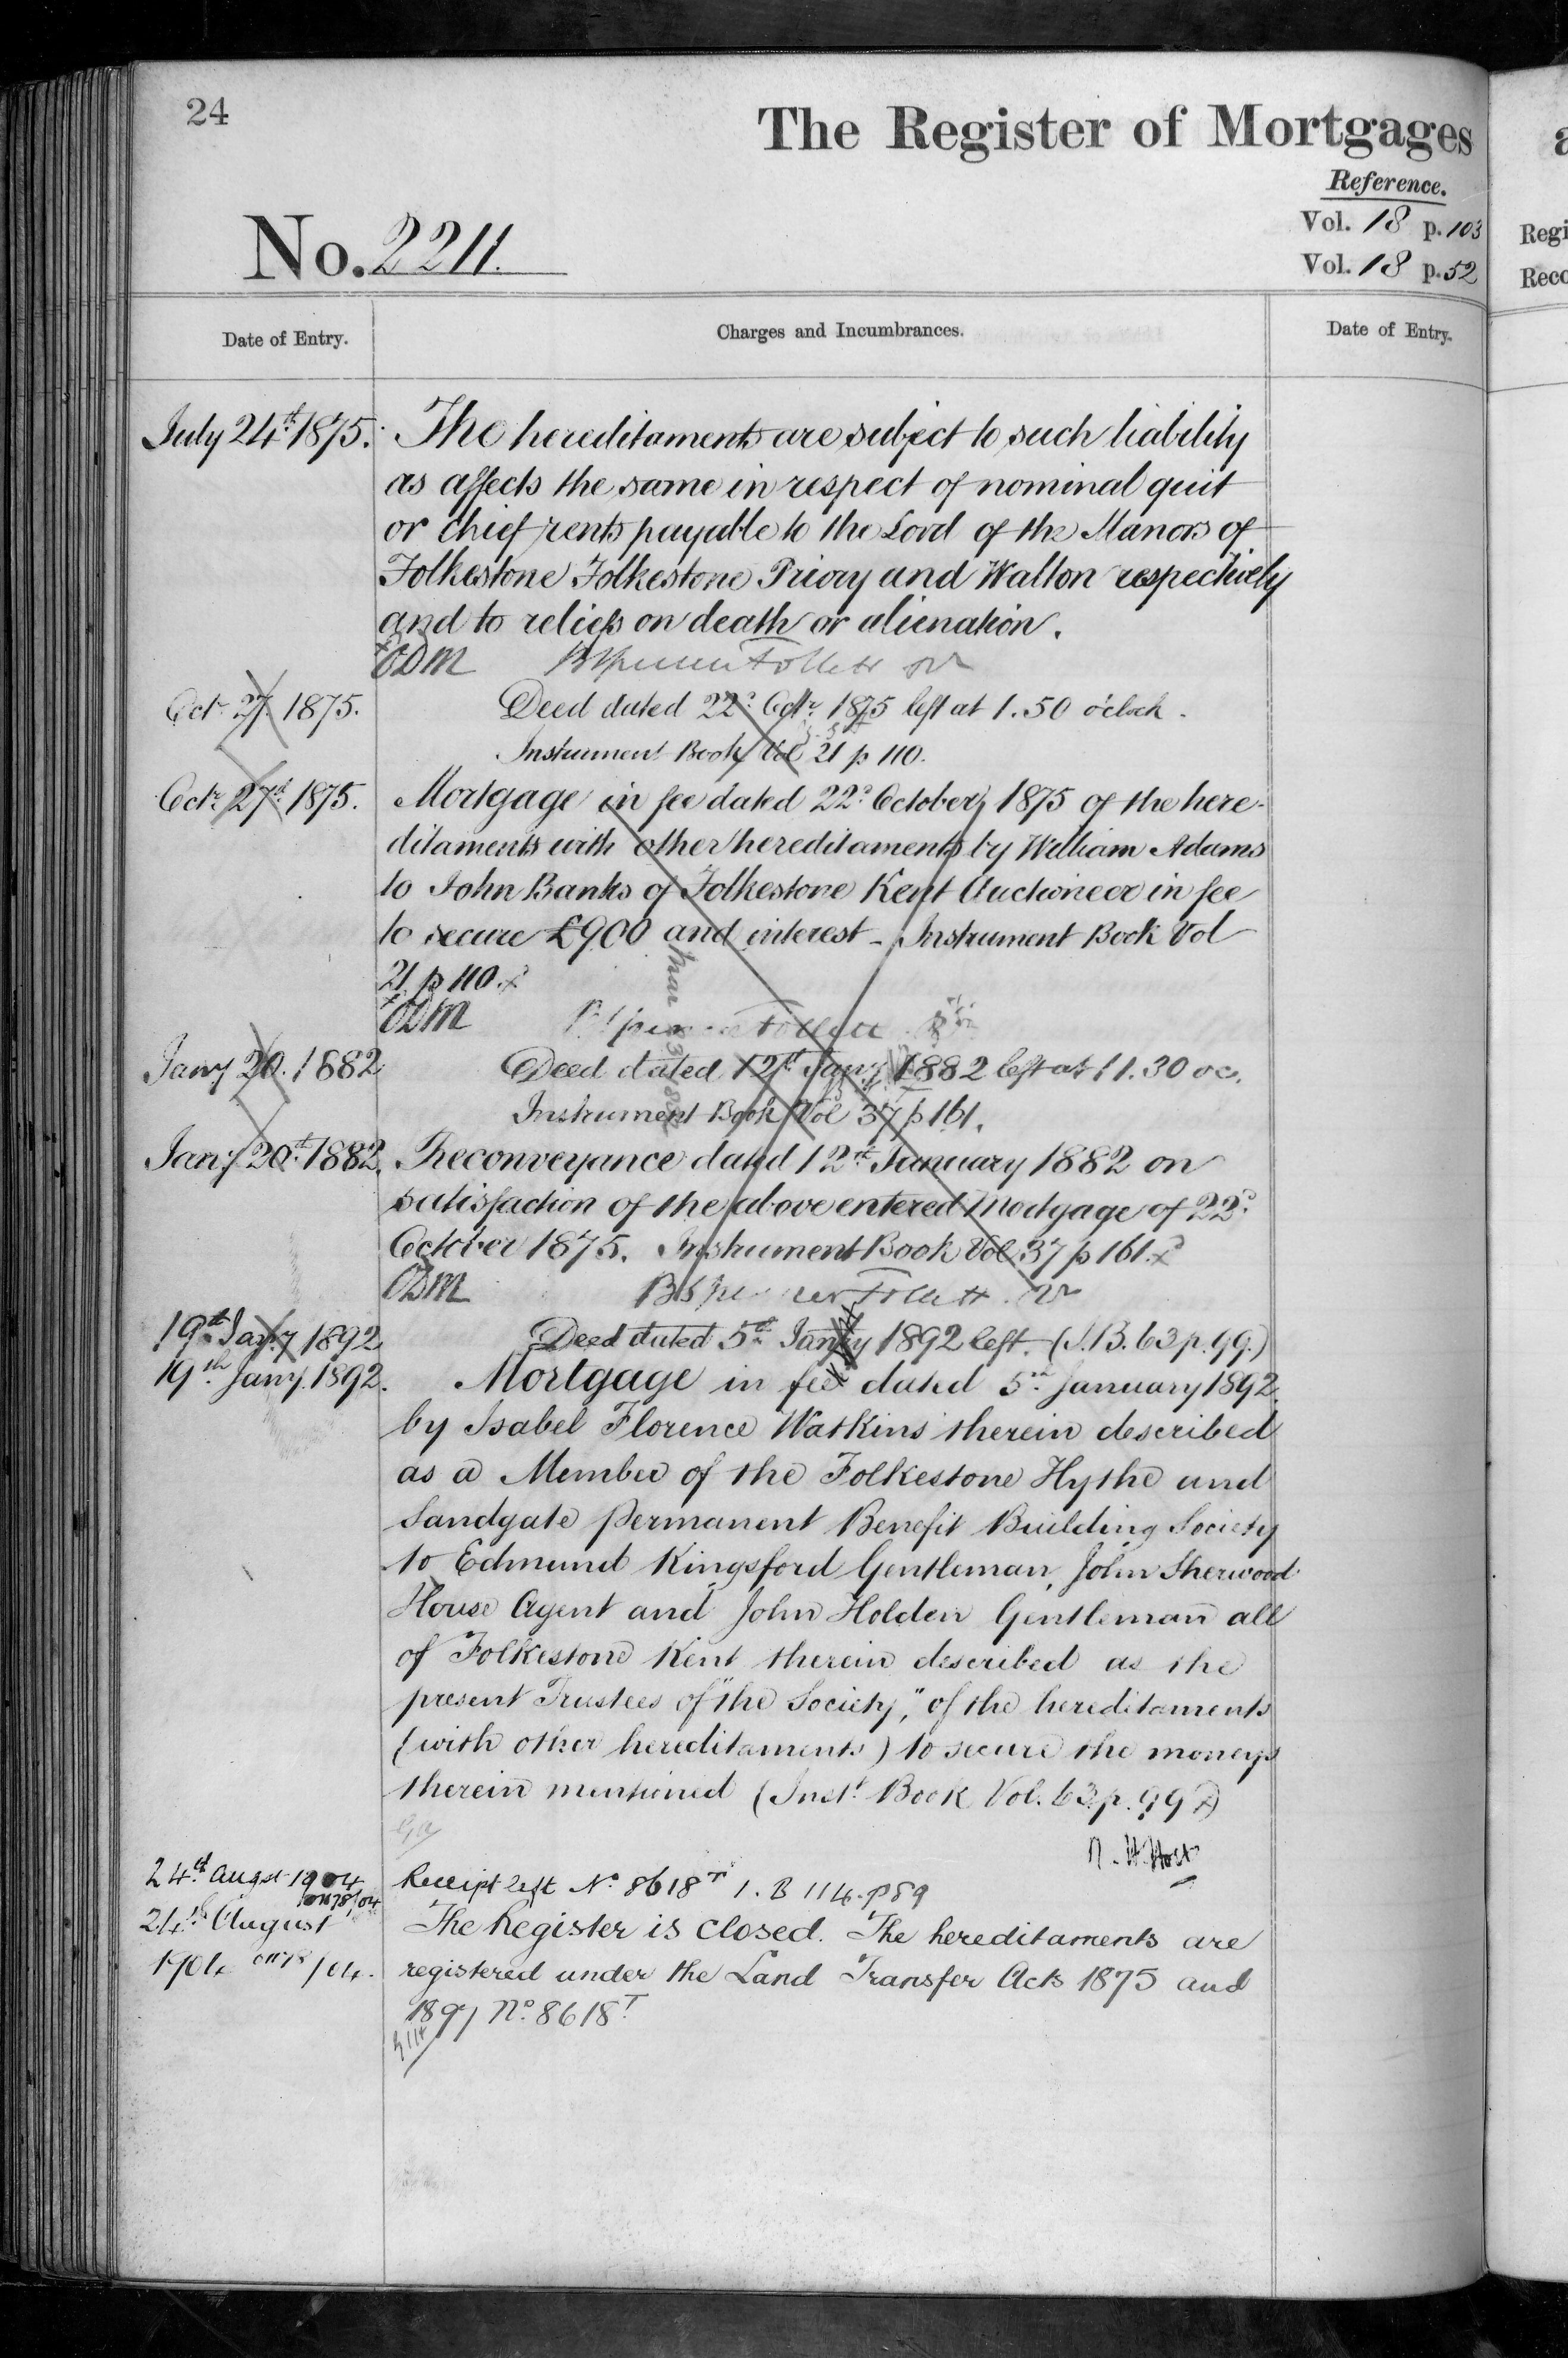 24
The Register of Mortgages
Reference.
No. 2211.
Vol. 18 p. 103
Vol. 18 p. 52
Regi
Reco
Date of Entry.
Charges and Incumbrances.
Date of Entry.
July 24th 1875.
The hereditaments are subject to such liability
as affects the same in respect of nominal quit
or chief rents payable to the Lord of the Manors of
Folkestone Folkestone Priory and Walton respectively
and to reliefs on death or alienation.
ODM BSpencer Follett
Octr 27. 1875.
Deed dated 22d Octr. 1875 left at 1.50 o'clock.
Instrument Book Vol 21 p 110.
Octr 27th 1875.
Mortgage in fee dated 22d October 1875 of the here-
ditaments with other hereditaments by William Adams
to John Banks of Folkestone Kent Auctioneer in fee
to secure £900 and interest - Instrument Book Vol
21 p 110.
ODM BSpencer Follett
Jany 20. 1882
Deed dated 12th Jany 1882 left at 11.30 oc.
Instrument Book Vol 37 p 161.
Jany 20th 1882.
Reconveyance dated 12th January 1882 on
satisfaction of the above entered Mortgage of 22d
October 1875. Instrument Book Vol 37 p 161.
ODM BSpencer Follett
19th Jany 1892
Deed dated 5th Jany 1892 left. (I.B. 63 p. 99.)
19th Jany. 1892.
Mortgage in fee dated 5th January 1892
by Isabel Florence Watkins therein described
as a Member of the Folkestone Hythe and
Sandgate Permanent Benefit Building Society
to Edmund Kingsford Gentleman, John Sherwood
House Agent and John Holden Gentleman all
of Folkestone Kent therein described as the
present Trustees of "the Society," of the hereditaments
(with other hereditaments) to secure the moneys
therein mentioned (Inst. Book Vol. 63 p. 99)
24th Augst 1904
Receipt left No 8618T I. B 114. p 89
24th August
1904
The Register is closed. The hereditaments are
registered under the Land Transfer Acts 1875 and
1897 No. 8618T